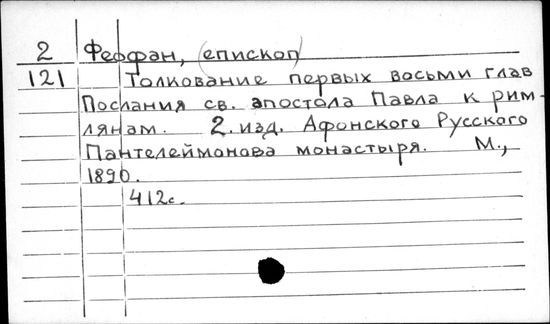 2 Феофан, (епископ)
121 Толкование первых восьми глав
Послания св. апостола Павла к рим-
лянам. 2. изд. Афонского Русского
Пантелеймонова монастыря. М.,
1890.
412с.